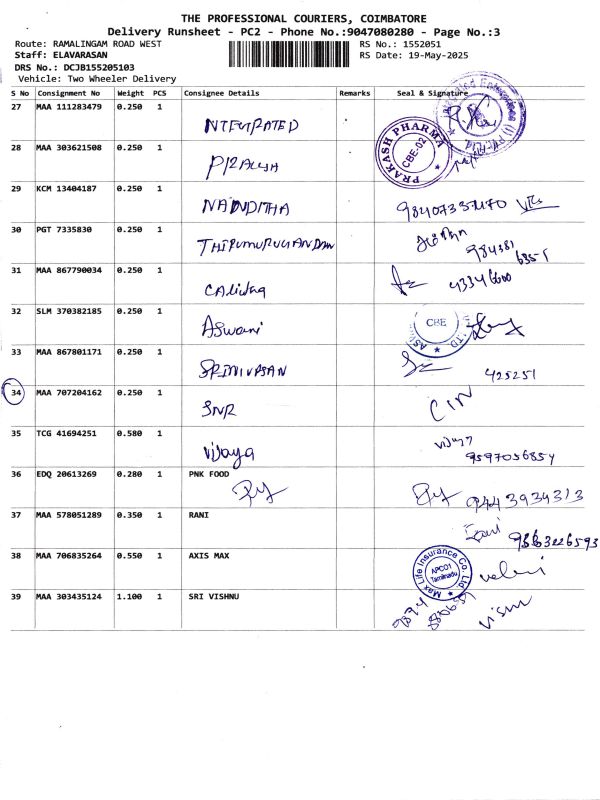 THE PROFESSIONAL COURIERS, COIMBATORE
Delivery Runsheet - PC2 - Phone No.:9047080280 - Page No.:3
Route: RAMALINGAM ROAD WEST
RS No.: 1552051
Staff: ELAVARASAN
RS Date: 19-May-2025
DRS No.: DCJB155205103
Vehicle: Two Wheeler Delivery
S No Consignment No Weight PCS Consignee Details Remarks Seal & Signature
27 MAA 111283479 0.250 1
28 MAA 303621508 0.250 1
PRAKASH PHARMA
CBE-02
29 KCM 13404187 0.250 1
NANDITHA
30 PGT 7335830 0.250 1
THIRUMURUGANANDAM
31 MAA 867790034 0.250 1
43346600
32 SLM 370382185 0.250 1
Aswani
CBE
33 MAA 867801171 0.250 1
SRINIVASAN
425251
34 MAA 707204162 0.250 1
SNR
35 TCG 41694251 0.580 1
Vijaya
9597056854
36 EDQ 20613269 0.280 1 PNK FOOD
9443934313
37 MAA 578051289 0.350 1 RANI
38 MAA 706835264 0.550 1 AXIS MAX
Max Life Insurance Co. Ltd
APCO1
Tamilnadu
39 MAA 303435124 1.100 1 SRI VISHNU